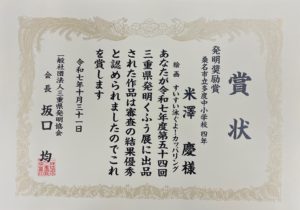 賞状
発明奨励賞
桑名市立多度中小学校 四年
米澤 慶様
絵画 すいすい泳ぐよ!カッパリング
あなたが令和七年度第五十四回
三重県発明くふう展に出品
された作品は審査の結果優秀
と認められましたのでこれ
を賞します
令和七年十月三十一日
一般社団法人三重県発明協会
会長 坂口 均